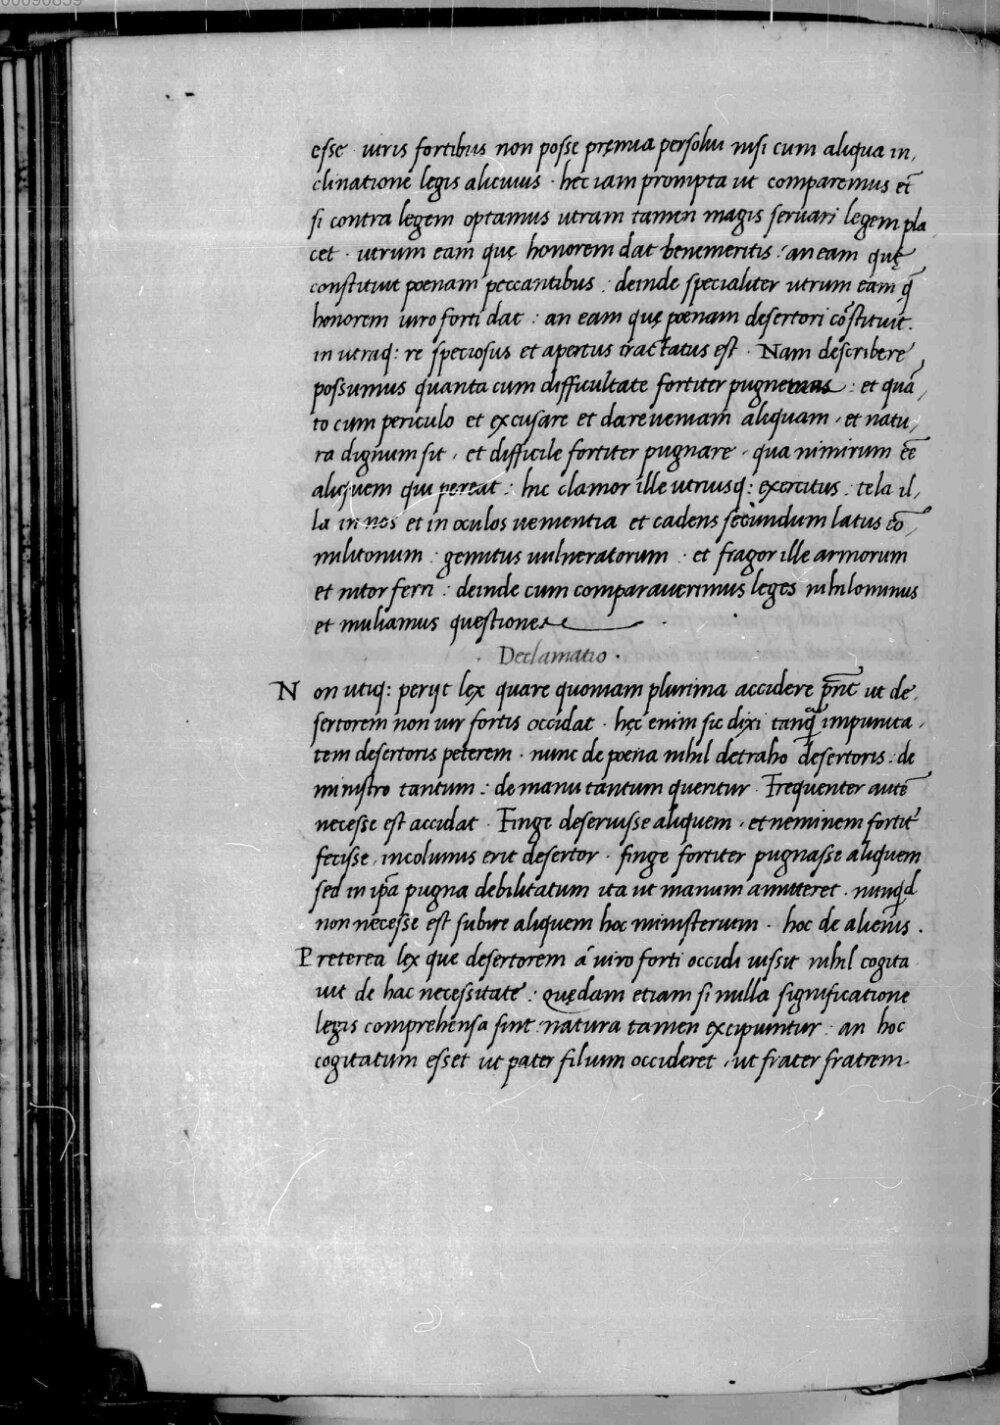 00090859
esse · uiris fortibus non posse pręmia persolui nisi cum aliqua in,
clinatione legis alicuius · hec iam prompta ut comparemus et̄
si contra legem optamus utram tamen magis seruari legem pla,
cet · utrum eam quę honorem dat benemeritis : an eam quę
constituit poenam peccantibus : deinde specialiter utrum eam q̄
honorem uiro forti dat : an eam quę poenam desertori cōstituit.
in utraq: re speciosus et apertus tractatus est · Nam describere
possumus quanta cum difficultate fortiter : et quā,
to cum periculo et excusare et dare ueniam aliquam · et natu,
ra dignum sit · et difficile fortiter pugnare · qua nimirum eē
aliquem qui pereat : hic clamor ille utriusq: exercitus : tela il,
la in nos et in oculos uenientia et cadens secundum latus cō,
militonum · gemitus uulneratorum · et fragor ille armorum
et nitor ferri : deinde cum comparauerimus leges nihilominus
et muliamus questiones
Declamatio ·
N on utiq: perijt lex quare quoniam plurima accidere pn̄t ut de
sertorem non uir fortis occidat · hęc enim sic dixi tanq̄ impunita,
tem desertoris peterem · nunc de poena nihil detraho desertoris : de
ministro tantum : de manu tantum queritur · Frequenter autē
necesse est accidat · Finge deseruisse aliquem · et neminem fortit̄
fecisse, incolumis erit desertor · finge fortiter pugnasse aliquem
sed in ip̄a pugna debilitatum ita ut manum amitteret · nunqd
non necesse est subire aliquem hoc ministerium · hoc de alienis .
P reterea lex que desertorem á uiro forti occidi iussit nihil cogita
uit de hac necessitate : quędam etiam si nulla significatione
legis comprehensa sint : natura tamen excipiuntur : an hoc
cogitatum esset ut pater filium occideret · ut frater fratrem